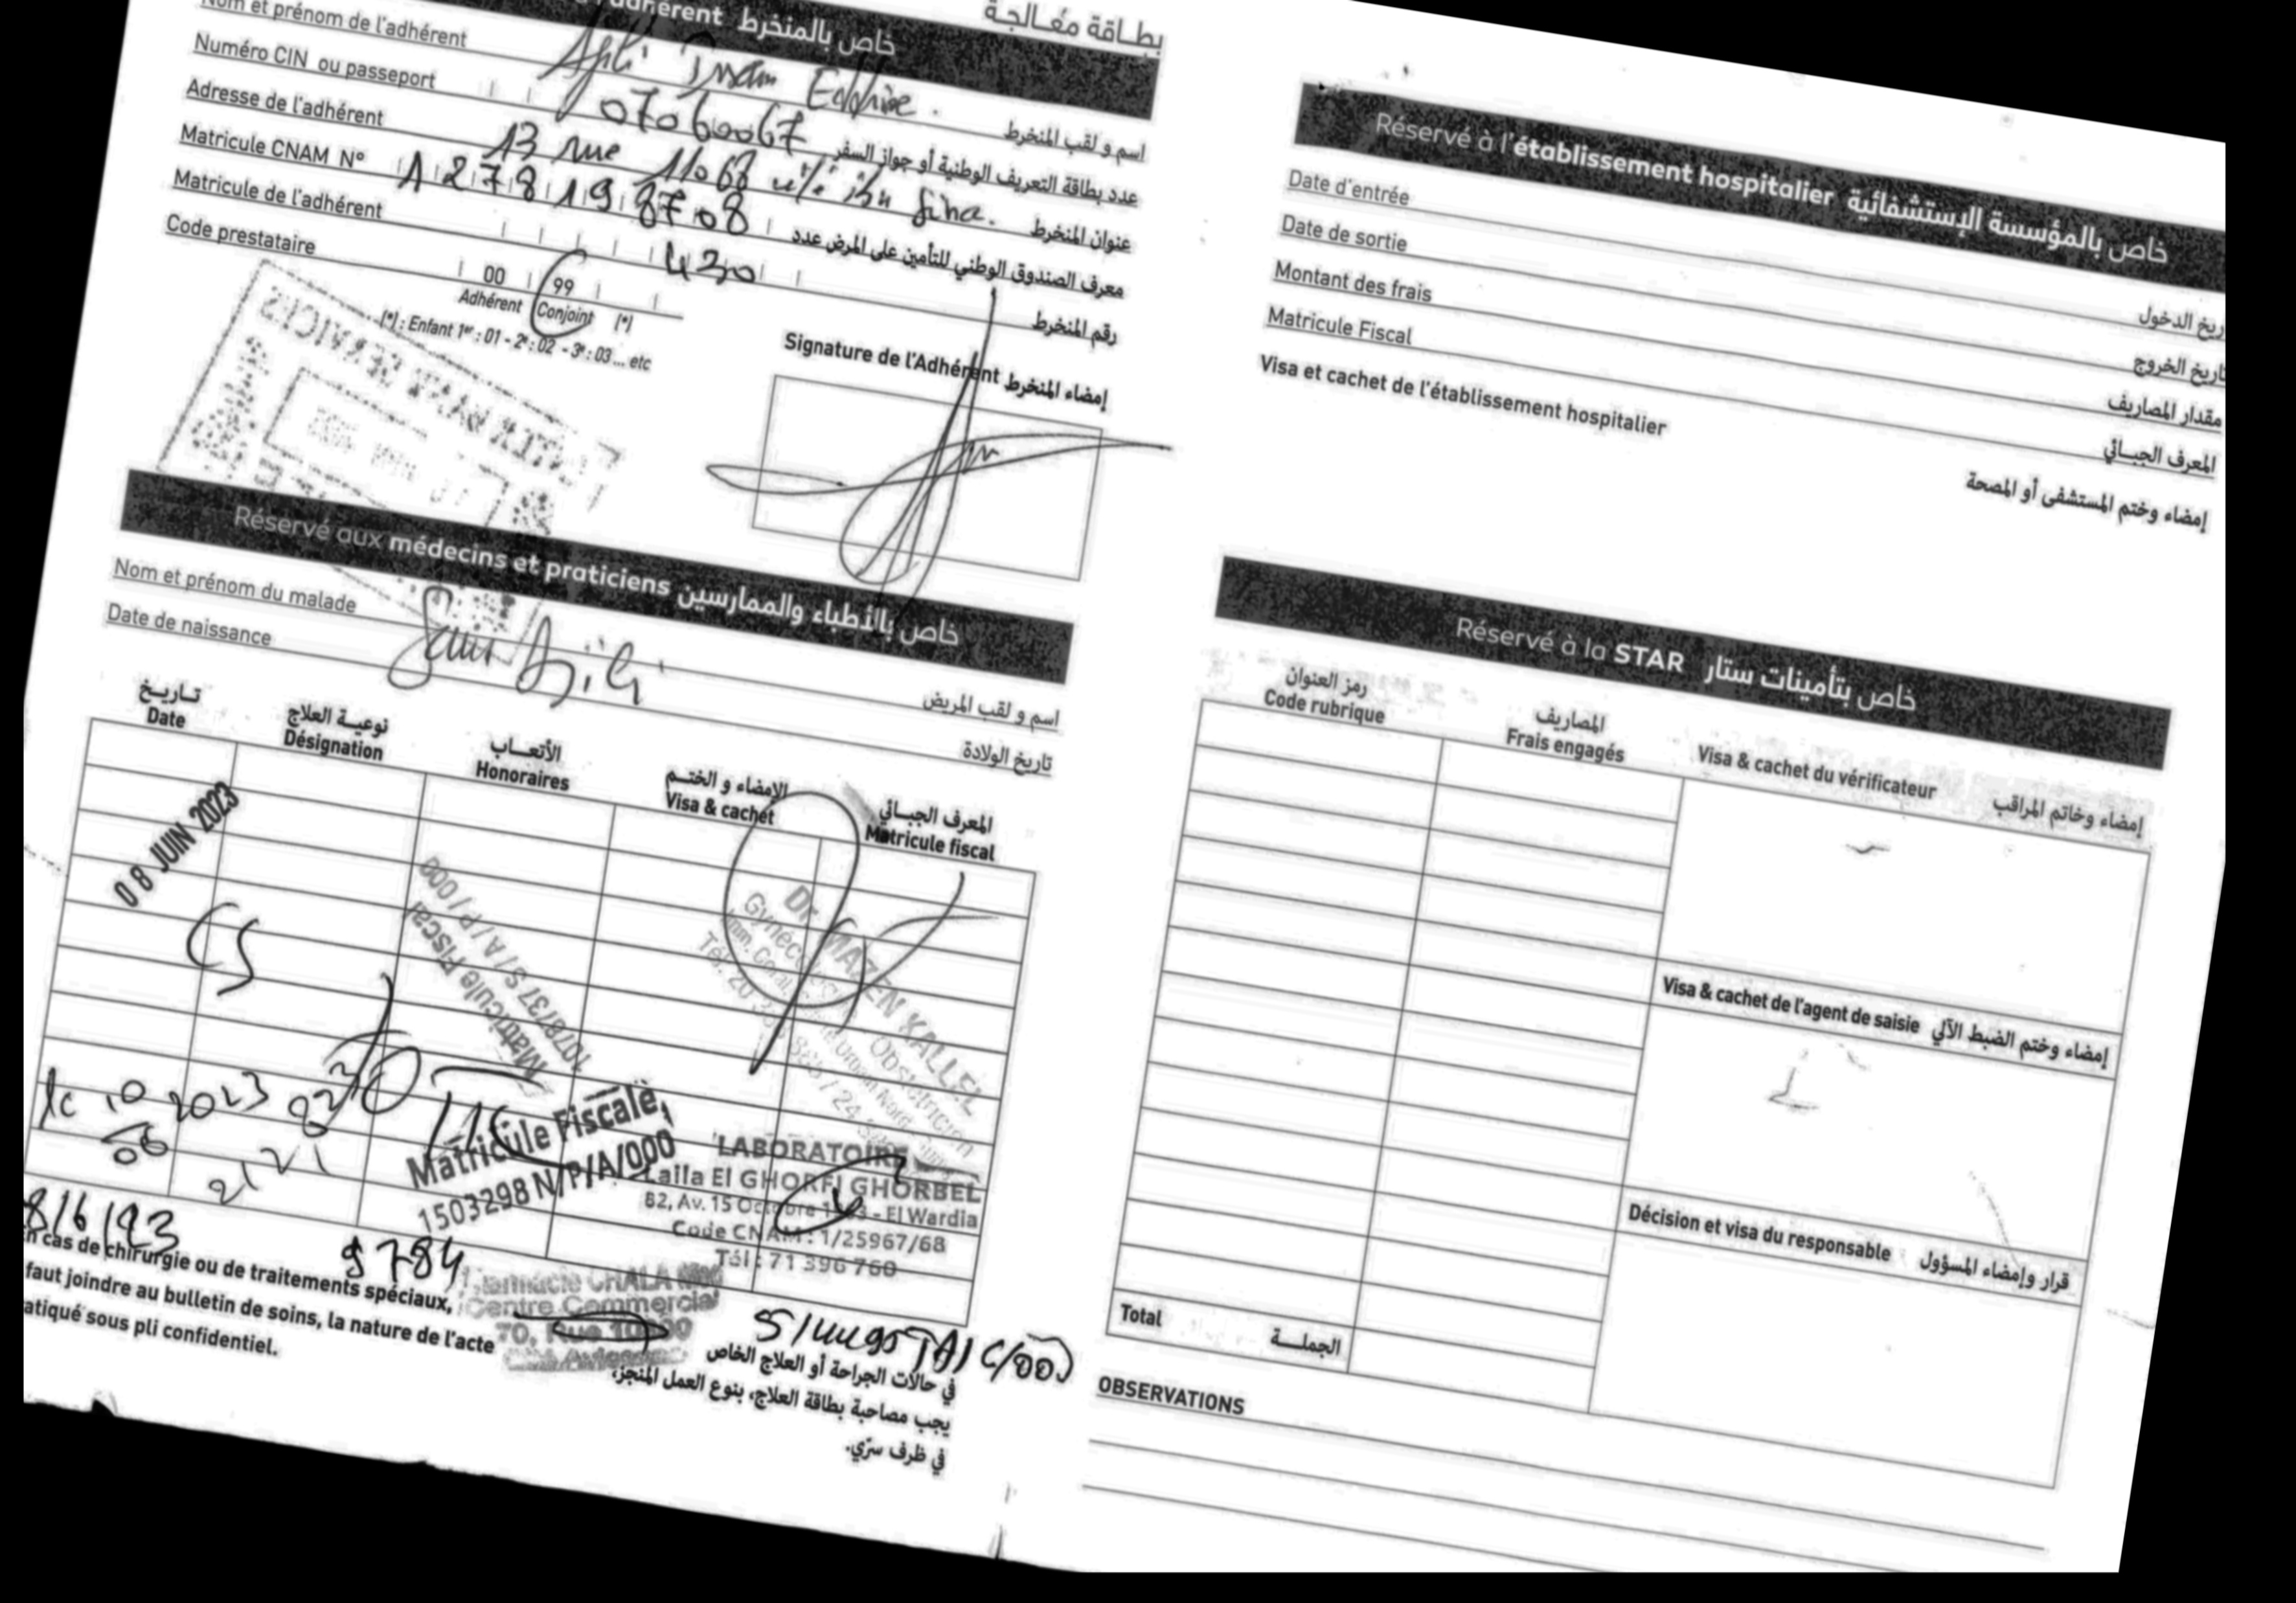 بطـاقة مُعـالجـة
adhérent خاص بالمنخرط
Nom et prénom de l'adhérent اسم و لقب المنخرط
Numéro CIN ou passeport 07060067 عدد بطاقة التعريف الوطنية أو جواز السفر
Adresse de l'adhérent 13 rue 11068 ibn Sina. عنوان المنخرط
Matricule CNAM N° 1 2 7 8 1 9 8 7 0 8 معرف الصندوق الوطني للتأمين على المرض عدد
Matricule de l'adhérent 430 رقم المنخرط
Code prestataire 00 99
Adhérent Conjoint (*)
(*) : Enfant 1er : 01 - 2e : 02 - 3e : 03 ... etc
Signature de l'Adhérent إمضاء المنخرط
Réservé aux médecins et praticiens خاص بالأطباء والممارسين
Nom et prénom du malade اسم و لقب المريض
Date de naissance تاريخ الولادة
تـاريـخ نوعيـة العلاج الأتعـــاب الإمضاء و الختـم المعرف الجبـائي
Date Désignation Honoraires Visa & cachet Matricule fiscal
08 JUIN 2023
CS
Matricule Fiscal
1078737 S / A / P / 000
Dr. MAZEN KALLEL
Gynécologue Obstétricien
10 2023
06
Matricule Fiscale
1503298 N/P/A/000
LABORATOIRE
Laila El GHORFI GHORBEL
82, Av. 15 Octobre - El Wardia
Code CNAM : 1/25967/68
Tél : 71 396 760
9 784
Centre Commercial
En cas de chirurgie ou de traitements spéciaux,
faut joindre au bulletin de soins, la nature de l'acte
pratiqué sous pli confidentiel.
في حالات الجراحة أو العلاج الخاص
يجب مصاحبة بطاقة العلاج، بنوع العمل المنجز،
في ظرف سرّي.
Réservé à l'établissement hospitalier خاص بالمؤسسة الإستشفائية
Date d'entrée تاريخ الدخول
Date de sortie تاريخ الخروج
Montant des frais مقدار المصاريف
Matricule Fiscal المعرف الجبـائي
Visa et cachet de l'établissement hospitalier إمضاء وختم المستشفى أو المصحة
Réservé à la STAR خاص بتأمينات ستار
رمز العنوان المصاريف
Code rubrique Frais engagés Visa & cachet du vérificateur إمضاء وخاتم المراقب
Visa & cachet de l'agent de saisie إمضاء وختم الضبط الآلي
Décision et visa du responsable قرار وإمضاء المسؤول
Total الجملـــة
OBSERVATIONS